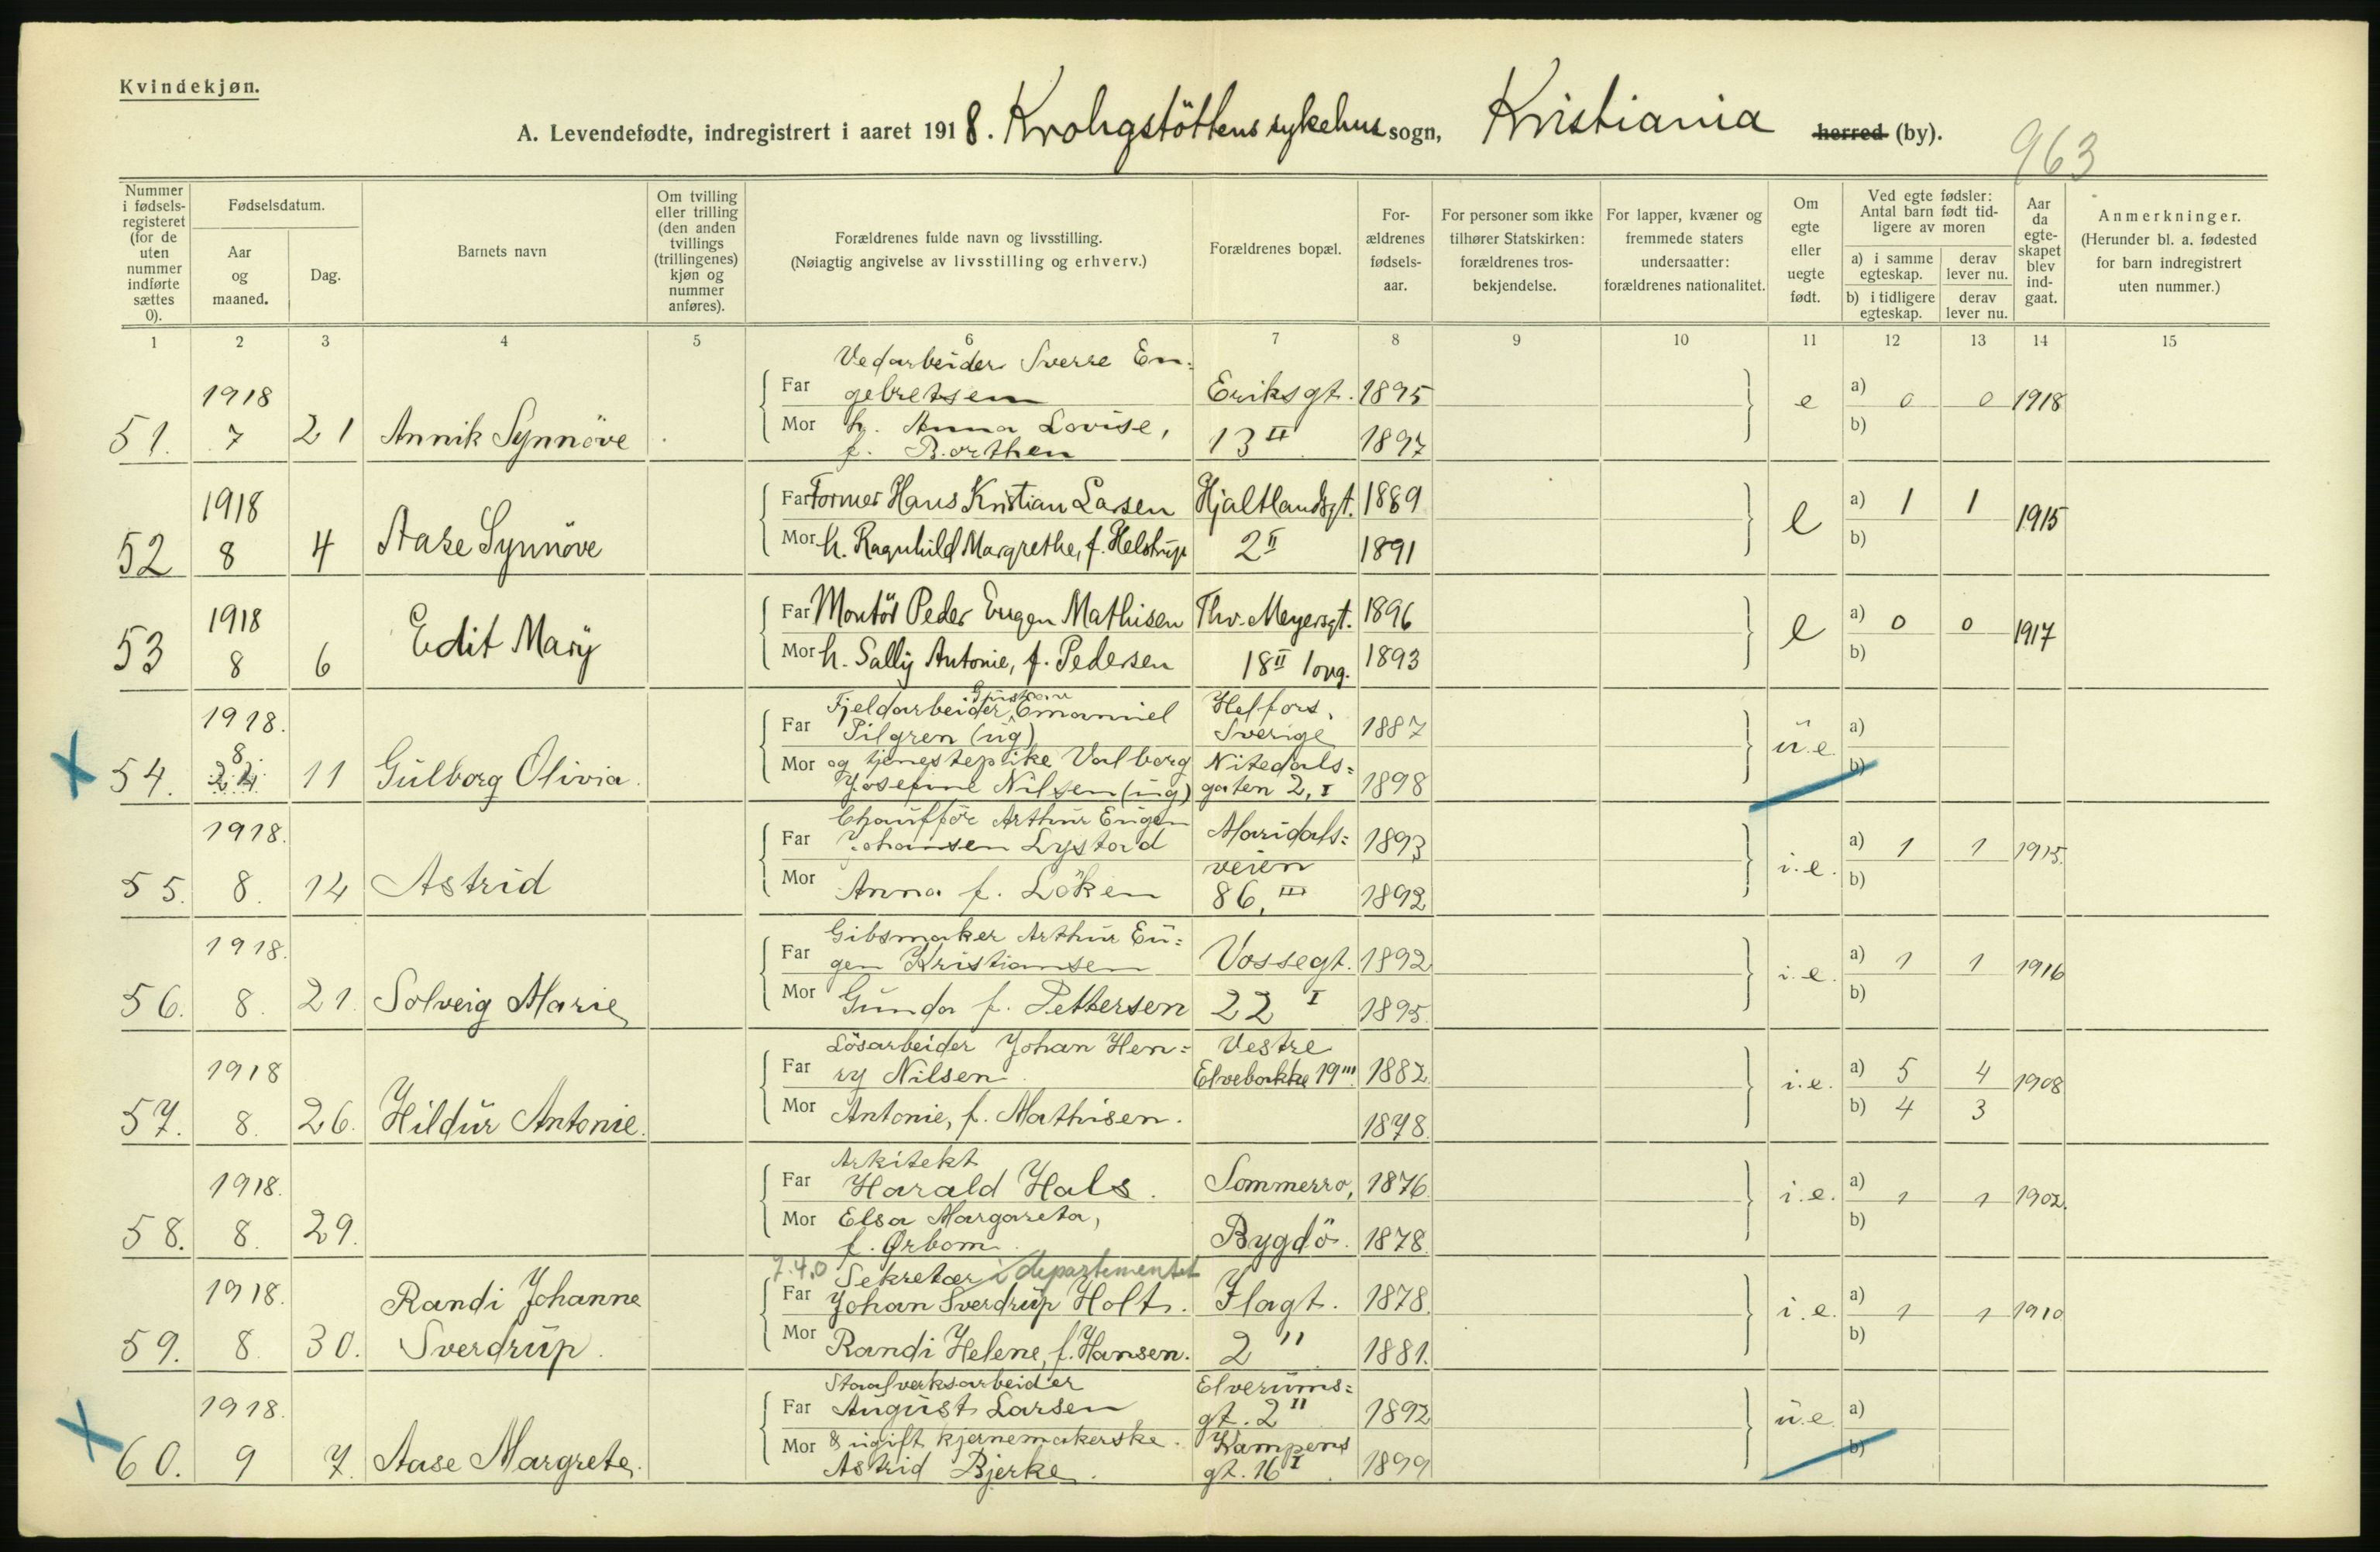 Kvindekjøn.
A. Levendefødte, indregistrert i aaret 1918. Krohgstöttens sykehus sogn, Kristiania herred (by).
963
Nummer i fødsels-registeret (for de uten nummer indførte sættes 0).
Fødselsdatum.
Aar og maaned.
Dag.
Barnets navn
Om tvilling eller trilling (den anden tvillings (trillingenes) kjøn og nummer anføres).
Forældrenes fulde navn og livsstilling. (Nøiagtig angivelse av livsstilling og erhverv.)
Forældrenes bopæl.
For-ældrenes fødsels-aar.
For personer som ikke tilhører Statskirken: forældrenes tros-bekjendelse.
For lapper, kvæner og fremmede staters undersaatter: forældrenes nationalitet.
Om egte eller uegte født.
Ved egte fødsler: Antal barn født tid-ligere av moren
a) i samme egteskap.
derav lever nu.
b) i tidligere egteskap.
derav lever nu.
Aar da egte-skapet blev ind-gaat.
Anmerkninger. (Herunder bl. a. fødested for barn indregistrert uten nummer.)
1 2 3 4 5 6 7 8 9 10 11 12 13 14 15
Vedarbeider Sverre En=
1918 Far gebretsen Eriksgt. 1895 e a) 0 0 1918
51. 7 21 Annik Synnöve Mor h. Anna Lovise, 13 II 1897 b)
f. Borthen
1918 Far Former Hans Kristian Larsen Hjaltlandsgt. 1889 e a) 1 1 1915
52 8 4 Aase Synnöve Mor h. Ragnhild Margrethe, f. Helstrup 2 II 1891 b)
1918 Far Montör Peder Eugen Mathisen Thv. Meyersgt. 1896 e a) 0 0 1917
53 8 6 Edit Mary Mor h. Sally Antonie, f. Pedersen 18 II opg. 1893 b)
Gustav
Fjeldarbeider, Emanuel Helfors,
1918. Far Pilgren (ug) Sverige 1887 u.e. a)
8.
54. 11 Gulborg Olivia. Mor og tjenestepike Valborg Nitedals= b)
Josefine Nilsen (ug) gaten 2, I 1898
Chaufför Arthur Eugen
1918. Far Johansen Lystad Maridals= 1893 i.e. a) 1 1 1915.
veien
55. 8. 14 Astrid Mor Anna f. Löken 86, III 1892 b)
Gibsmaker Arthur Eu=
1918. Far gen Kristiansen Vossegt. 1892 i.e. a) 1 1 1916
56. 8. 21. Solveig Marie Mor Gunda f. Pettersen 22 I 1895. b)
Lösarbeider Johan Hen= Vestre
1918 Far ry Nilsen Elvebakke 19 III 1882 i.e. a) 5 4 1908
57. 8. 26. Hildur Antonie. Mor Antonie, f. Mathisen. 1878. b) 4 3
Arkitekt
1918. Far Harald Hals. Sommerro, 1876. i.e. a) 1 1 1902.
58. 8. 29. Mor Elsa Margareta, Bygdö. 1878. b)
f. Ørbom
7.4.0 Sekretær i departementet
1918. Randi Johanne Far Johan Sverdrup Holt. Flagt. 1878. i.e. a) 1 1 1910
59. 8. 30. Sverdrup. Mor Randi Helene, f. Hansen. 2 II 1881. b)
Staalverksarbeider Elverums=
1918. Far August Larsen gt. 2 II 1892 u.e. a)
60. 9 7. Aase Margrete. Mor & ugift kjernemakerske. Kampens b)
Astrid Bjerke. gt. 16 I 1899